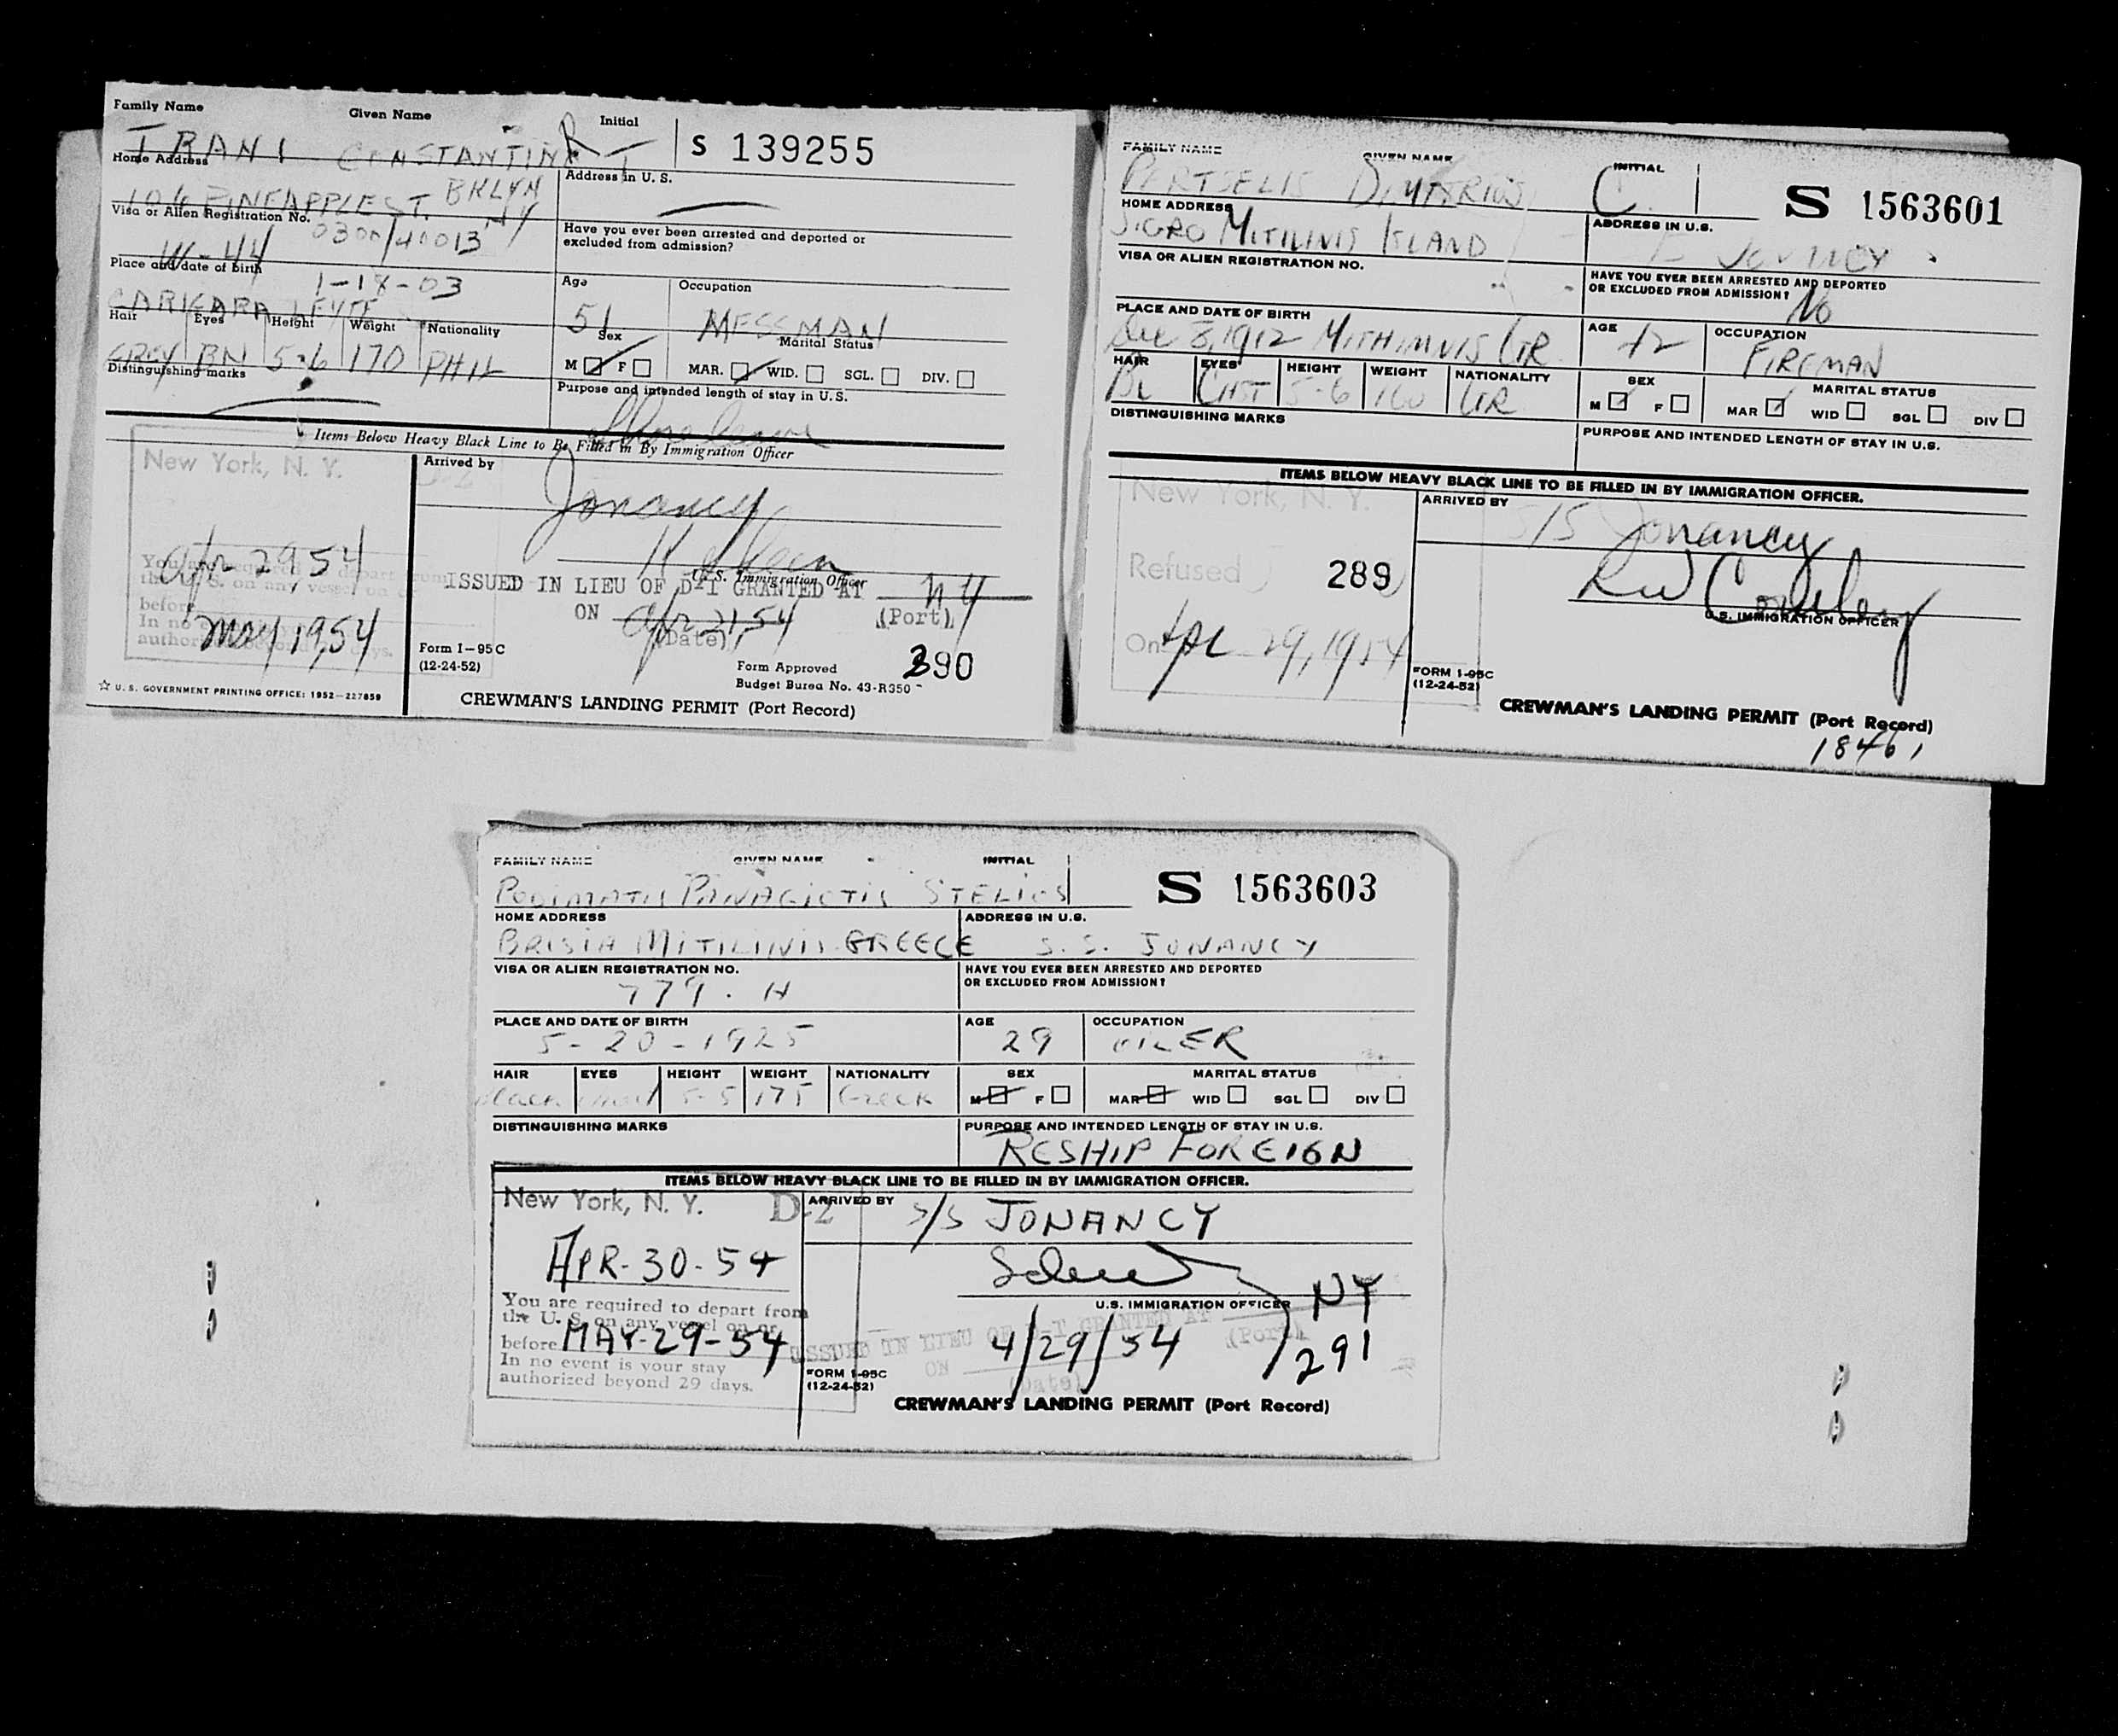 Family Name Given Name Initial
IRANI CONSTANTINE R S 139255
Home Address
106 PINEAPPLE ST. BKLYN NY
Address in U. S.
Visa or Alien Registration No.
0300/40013
Have you ever been arrested and deported or
excluded from admission?
Place and date of birth
1-18-03
CARIGARA LEYTE
Age Occupation
51 MESSMAN
Hair Eyes Height Weight Nationality
GREY BN 5-6 170 PHIL
Sex Marital Status
M F MAR. WID. SGL. DIV.
Distinguishing marks
Purpose and intended length of stay in U. S.
Items Below Heavy Black Line to Be Filled in By Immigration Officer
New York, N. Y.
Arrived by
Jonancy
Apr 29 54
U. S. Immigration Officer
ISSUED IN LIEU OF D-1 GRANTED AT NY
ON (Port)
(Date)
before May 19, 54
Form I-95C
(12-24-52)
Form Approved
Budget Burea No. 43-R350
290
☆ U. S. GOVERNMENT PRINTING OFFICE: 1952—227859
CREWMAN'S LANDING PERMIT (Port Record)
FAMILY NAME GIVEN NAME INITIAL
PERTSELIS DIMITRIOS C. S 1563601
HOME ADDRESS
SIGRO MITILINIS ISLAND
ADDRESS IN U.S.
VISA OR ALIEN REGISTRATION NO.
HAVE YOU EVER BEEN ARRESTED AND DEPORTED
OR EXCLUDED FROM ADMISSION? No
PLACE AND DATE OF BIRTH
Dec 3, 1912 MITHIMNIS GR
AGE OCCUPATION
42 FIREMAN
HAIR EYES HEIGHT WEIGHT NATIONALITY
BL CHST 5-6 160 GR
SEX MARITAL STATUS
M F MAR WID SGL DIV
DISTINGUISHING MARKS
PURPOSE AND INTENDED LENGTH OF STAY IN U.S.
ITEMS BELOW HEAVY BLACK LINE TO BE FILLED IN BY IMMIGRATION OFFICER.
New York, N. Y.
ARRIVED BY
S/S Jonancy
Refused 289
U.S. IMMIGRATION OFFICER
On Apr 29, 1954
FORM I-95C
(12-24-52)
CREWMAN'S LANDING PERMIT (Port Record)
18461
FAMILY NAME GIVEN NAME INITIAL
PODIMATIS PANAGIOTIS STELIOS S 1563603
HOME ADDRESS ADDRESS IN U.S.
BRISIA MITILINIS GREECE S.S. JONANCY
VISA OR ALIEN REGISTRATION NO.
779. H
HAVE YOU EVER BEEN ARRESTED AND DEPORTED
OR EXCLUDED FROM ADMISSION?
PLACE AND DATE OF BIRTH
5-20-1925
AGE OCCUPATION
29 OILER
HAIR EYES HEIGHT WEIGHT NATIONALITY
Black 5-5 175 Greek
SEX MARITAL STATUS
M F MAR WID SGL DIV
DISTINGUISHING MARKS
PURPOSE AND INTENDED LENGTH OF STAY IN U.S.
RESHIP FOREIGN
ITEMS BELOW HEAVY BLACK LINE TO BE FILLED IN BY IMMIGRATION OFFICER.
New York, N. Y. D-2
ARRIVED BY
S/S JONANCY
APR-30-54
U.S. IMMIGRATION OFFICER
NY
You are required to depart from
the U. S. on any vessel on or
before MAY-29-54
In no event is your stay
authorized beyond 29 days.
ISSUED IN LIEU OF D-1 GRANTED AT
(Port)
ON 4/29/54
(Date)
291
FORM I-95C
(12-24-52)
CREWMAN'S LANDING PERMIT (Port Record)